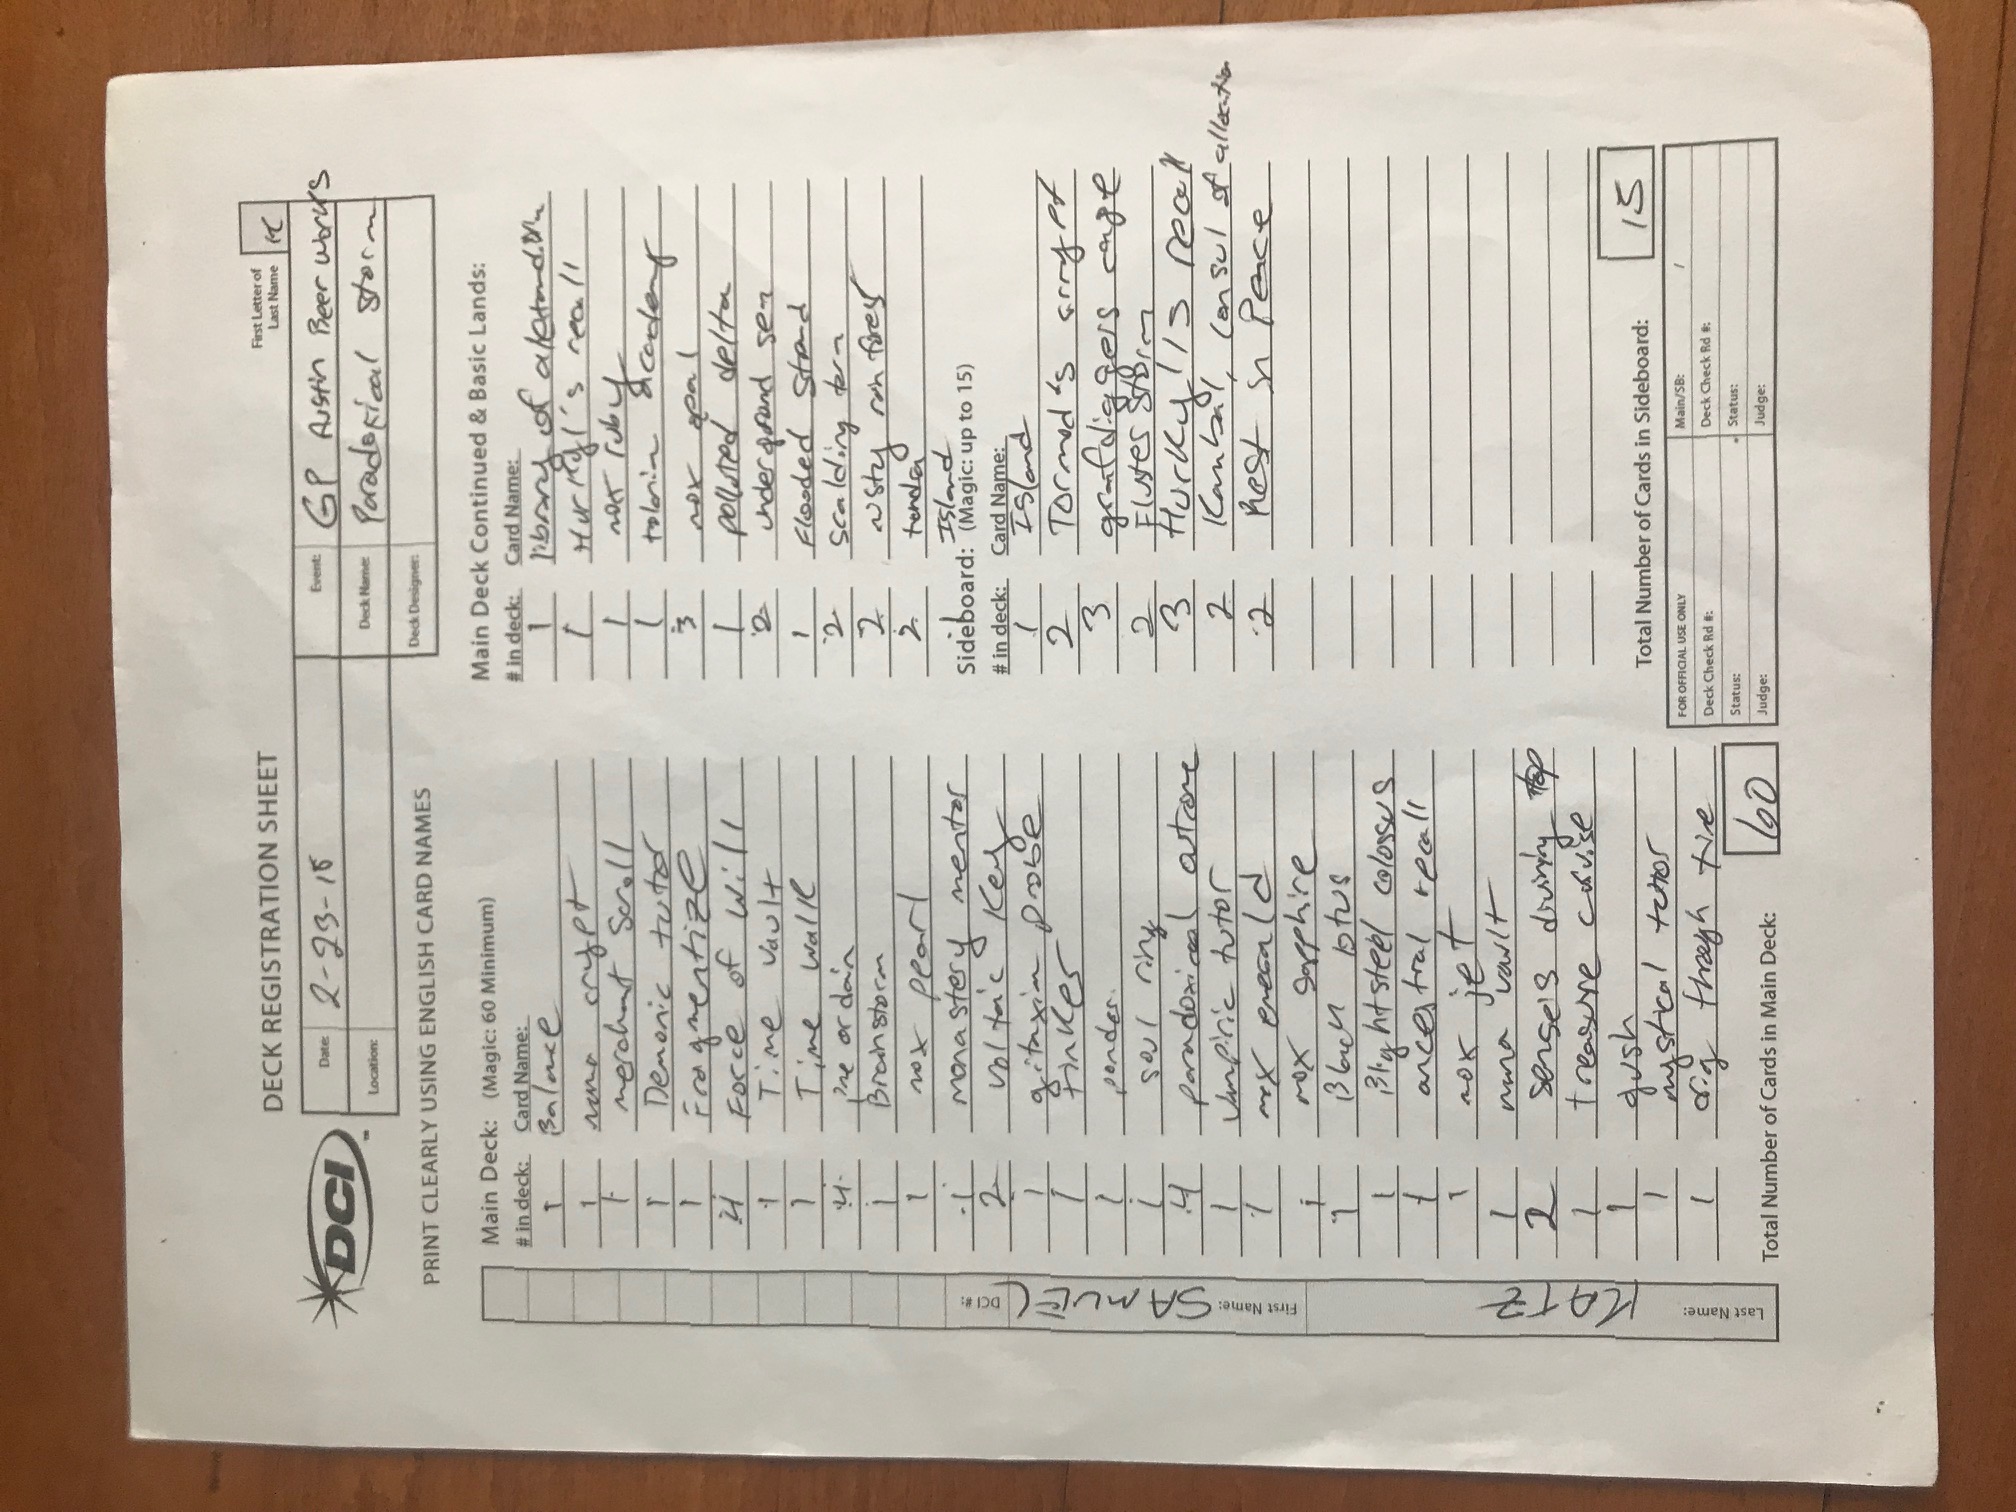 DECK REGISTRATION SHEET
First Letter of Last Name K
DCI
Date: 2-23-18
Event: GP Austin Beer works
Location:
Deck Name: Paradoxical Storm
Deck Designer:
PRINT CLEARLY USING ENGLISH CARD NAMES
Last Name: KATZ First Name: SAMUEL DCI #:
Main Deck: (Magic: 60 Minimum)
# in deck: Card Name:
1 Balance
1 mana crypt
1 merchant Scroll
1 Demonic tutor
1 Fragmentize
4 Force of Will
1 Time vault
1 Time walk
4 pre ordain
1 Brainstorm
1 mox pearl
1 monastery mentor
2 voltaic Key
1 gitaxin probe
1 tinker
1 ponder
1 soul ring
4 paradoxical outcome
1 Vampiric tutor
1 mox emerald
1 mox sapphire
1 Black lotus
1 Blightsteel colossus
1 ancestral recall
1 mox jet
1 mana vault
2 senseis divining top
1 treasure cruise
1 gush
1 mystical tutor
1 through
Total Number of Cards in Main Deck: 60
Main Deck Continued & Basic Lands:
# in deck: Card Name:
1 library of
1 Hurkyl's recall
1 mox ruby
1 academy
3 mox opal
1 polluted delta
2 sea
1 Flooded Strand
2 scalding tarn
2
2 tundra
Island
Sideboard: (Magic: up to 15)
# in deck: Card Name:
1 Island
2 Tormod's crypt
3 grafdiggers cage
2 Fluster Storm
3 Hurkyl's recall
2 Kambal, consul of allocation
2 Rest in Peace
Total Number of Cards in Sideboard: 15
FOR OFFICIAL USE ONLY
Main/SB: /
Deck Check Rd #:
Deck Check Rd #:
Status:
Status:
Judge:
Judge: